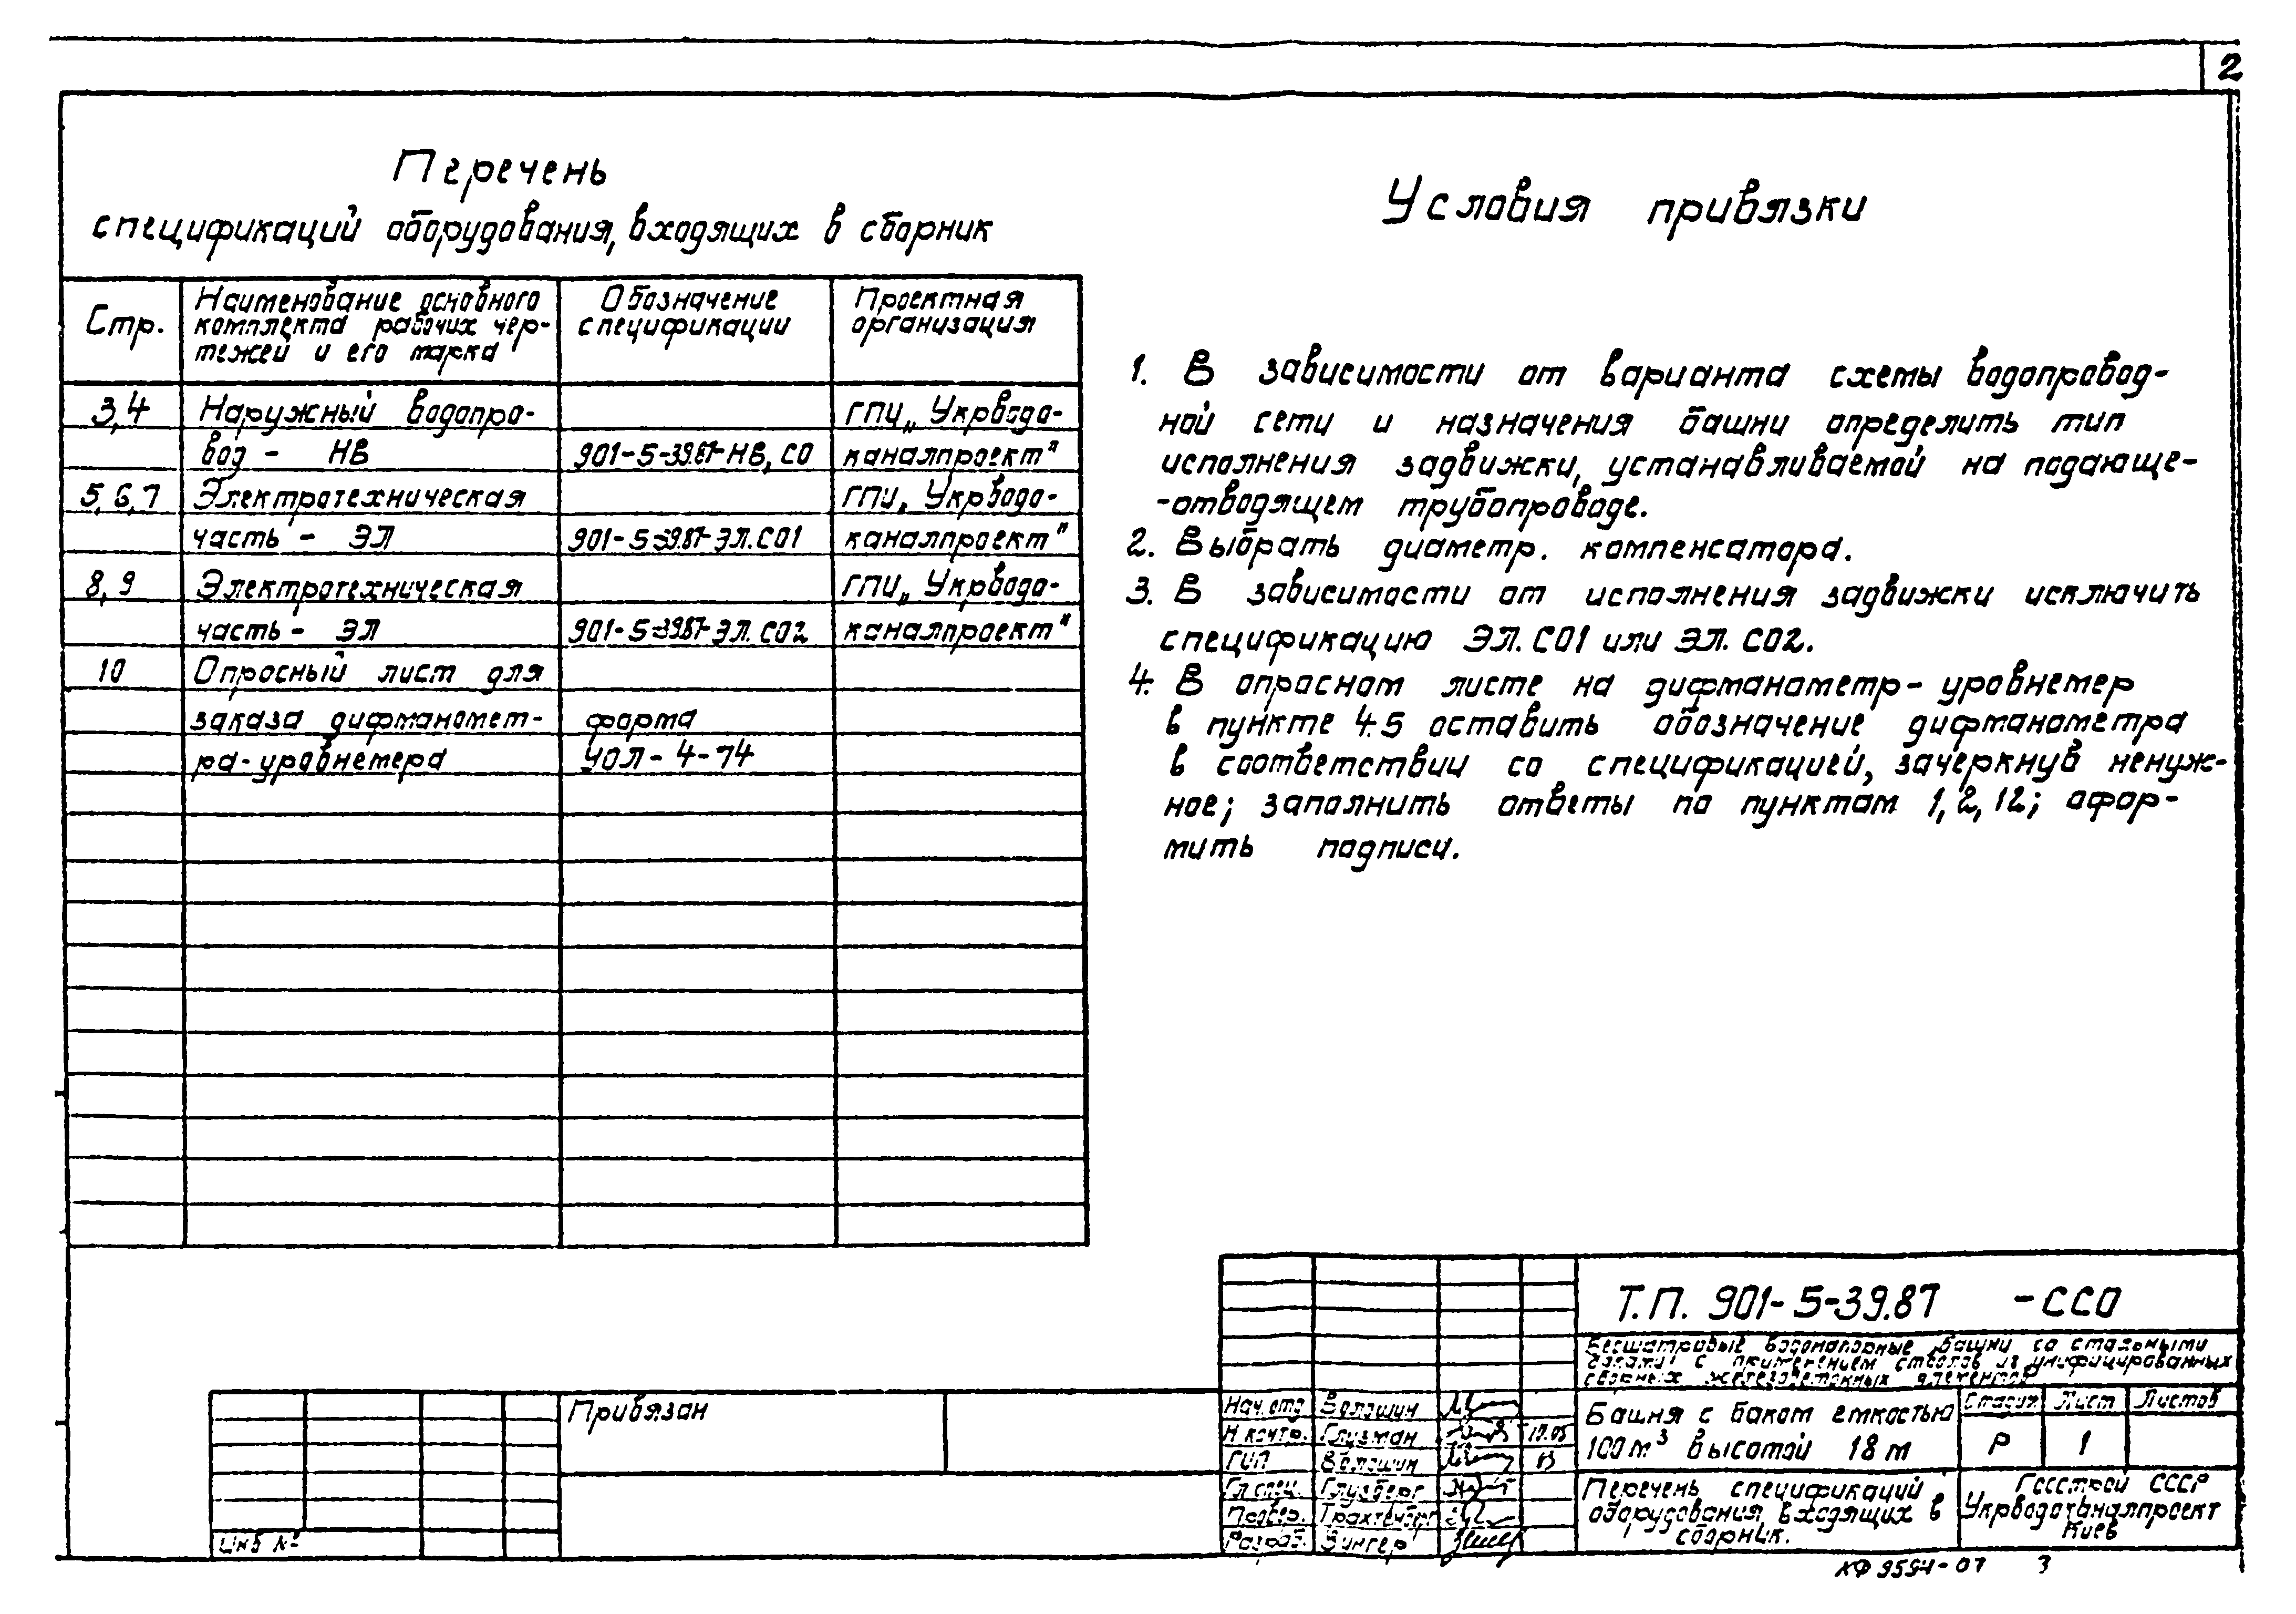 2
Перечень
спецификаций оборудования, входящих в сборник
Стр.
Наименование основного
комплекта рабочих чер-
тежей и его марка
Обозначение
спецификации
Проектная
организация
3,4 Наружный водопро- ГПИ „Укрводо-
вод - НВ 901-5-39.87-НВ, СО каналпроект"
5,6,7 Электротехническая ГПИ „Укрводо-
часть - ЭЛ 901-5-39.87-ЭЛ.СО1 каналпроект"
8,9 Электротехническая ГПИ „Укрводо-
часть - ЭЛ 901-5-39.87-ЭЛ.СО2 каналпроект"
10 Опросный лист для
заказа дифманомет- форма
ра-уровнемера УОЛ-4-74
Условия привязки
1. В зависимости от варианта схемы водопровод-
ной сети и назначения башни определить тип
исполнения задвижки, устанавливаемой на подающе-
-отводящем трубопроводе.
2. Выбрать диаметр. компенсатора.
3. В зависимости от исполнения задвижки исключить
спецификацию ЭЛ.СО1 или ЭЛ.СО2.
4. В опросном листе на дифманометр-уровнемер
в пункте 4.5 оставить обозначение дифманометра
в соответствии со спецификацией, зачеркнув ненуж-
ное; заполнить ответы по пунктам 1,2,12; офор-
мить подписи.
Т.П. 901-5-39.87 -ССО
Бесшатровые водонапорные башни со стальными
баками с применением стволов из унифицированных
сборных железобетонных элементов
Башня с баком емкостью
100м³ высотой 18м
Стадия Лист Листов
Р 1
Перечень спецификаций
оборудования, входящих в
сборник.
Госстрой СССР
Укрводоканалпроект
Киев
Нач.отд Волошин
Н.контр. Глузман 10.05
ГИП Волошин
Гл.спец. Глузберг
Провер. Трахтенберг
Разраб. Зингер
Привязан
Инв №
КФ 9594-07 3